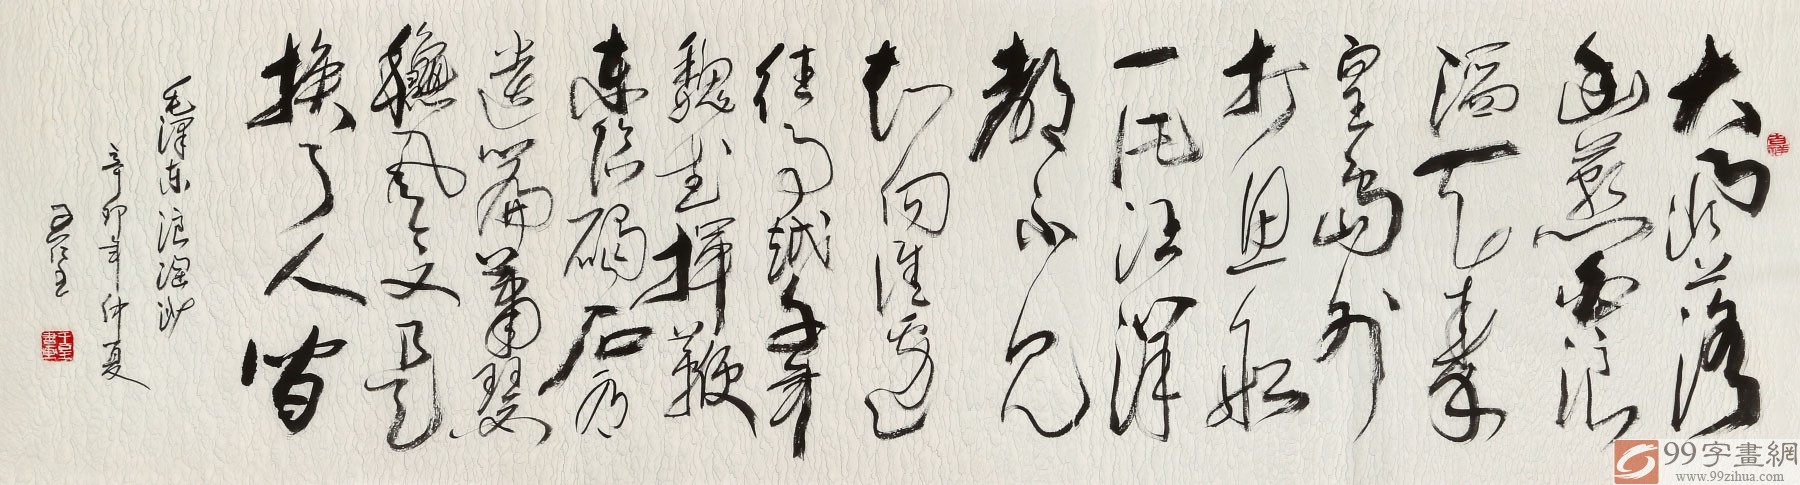 大雨落
幽燕白浪
滔天秦
皇島外
打魚船
一片汪洋
都不見
知向誰邊
往事越千年
魏武揮鞭
东临碣石有
遺篇蕭瑟
穐風今又是
换了人間
毛澤东浪淘沙
辛卯年仲夏
99字畫網
www.99zihua.com